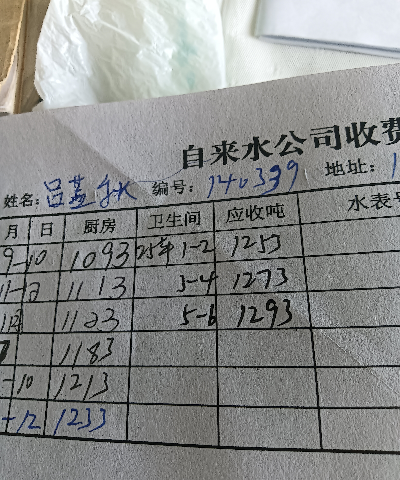 自来水公司收费
姓名: 吕 编号: 140339 地址: 1
月 日 厨房 卫生间 应收吨 水表号
9-10 1093 25年 1-2 1253
11-12 1113 3-4 1273
1123 5-6 1293
1183
-10 1213
-12 1233